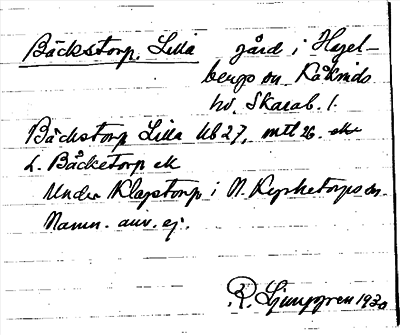 Bäckstorp. Lilla gård i Hagel-
bergs sn Kåkinds
hd. Skarab. l.
Bäckstorp Lilla Ub 27, mtl 26 ek
L. Bäcketorp ek
Under Klapstorp i N. Kyrketorps sn.
Namn. anv. ej.
R. Ljunggren 1930